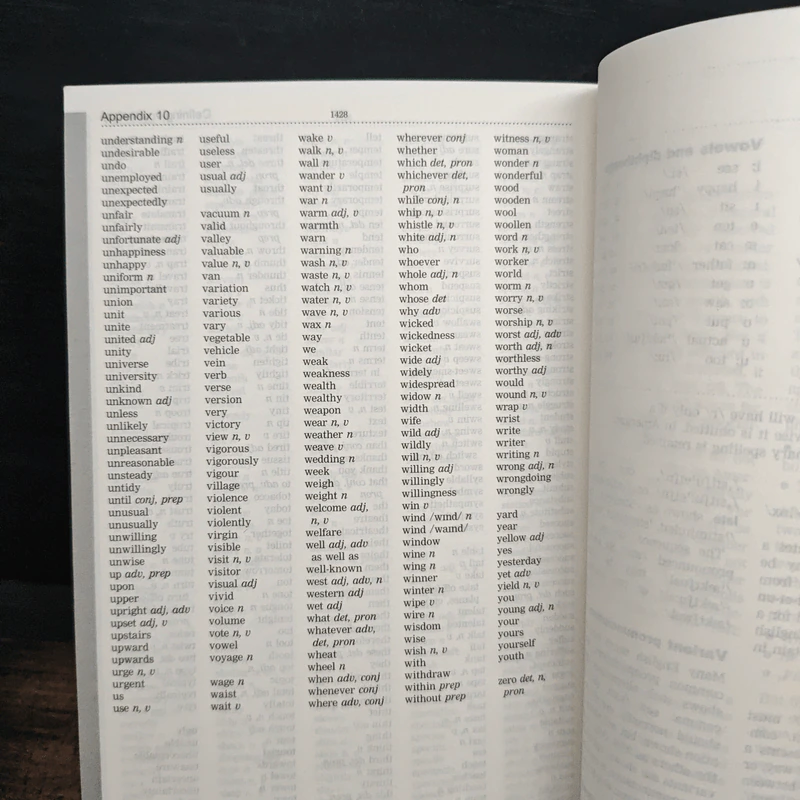 Appendix 10
1428
understanding n
undesirable
undo
unemployed
unexpected
unexpectedly
unfair
unfairly
unfortunate adj
unhappiness
unhappy
uniform n
unimportant
union
unit
unite
united adj
unity
universe
university
unkind
unknown adj
unless
unlikely
unnecessary
unpleasant
unreasonable
unsteady
untidy
until conj, prep
unusual
unusually
unwilling
unwillingly
unwise
up adv, prep
upon
upper
upright adj, adv
upset adj, v
upstairs
upward
upwards
urge n, v
urgent
us
use n, v
useful
useless
user
usual adj
usually
vacuum n
valid
valley
valuable
value n, v
van
variation
variety
various
vary
vegetable
vehicle
vein
verb
verse
version
very
victory
view n, v
vigorous
vigorously
vigour
village
violence
violent
violently
virgin
visible
visit n, v
visitor
visual adj
vivid
voice n
volume
vote n, v
vowel
voyage n
wage n
waist
wait v
wake v
walk n, v
wall n
wander v
want v
war n
warm adj, v
warmth
warn
warning n
wash n, v
waste n, v
watch n, v
water n, v
wave n, v
wax n
way
we
weak
weakness
wealth
wealthy
weapon
wear n, v
weather n
weave v
wedding n
week
weigh
weight n
welcome adj,
n, v
welfare
well adj, adv
as well as
well-known
west adj, adv, n
western adj
wet adj
what det, pron
whatever adv,
det, pron
wheat
wheel n
when adv, conj
whenever conj
where adv, conj
wherever conj
whether
which det, pron
whichever det,
pron
while conj, n
whip n, v
whistle n, v
white adj, n
who
whoever
whole adj, n
whom
whose det
why adv
wicked
wickedness
wicket
wide adj
widely
widespread
widow n
width
wife
wild adj
wildly
will n, v
willing adj
willingly
willingness
win v
wind /wɪnd/ n
wind /waɪnd/
window
wine n
wing n
winner
winter n
wipe v
wire n
wisdom
wise
wish n, v
with
withdraw
within prep
without prep
witness n, v
woman
wonder n
wonderful
wood
wooden
wool
woollen
word n
work n, v
worker
world
worm n
worry n, v
worse
worship n, v
worst adj, adv
worth adj, n
worthless
worthy adj
would
wound n, v
wrap v
wrist
write
writer
writing n
wrong adj, n
wrongdoing
wrongly
yard
year
yellow adj
yes
yesterday
yet adv
yield n, v
you
young adj, n
your
yours
yourself
youth
zero det, n,
pron